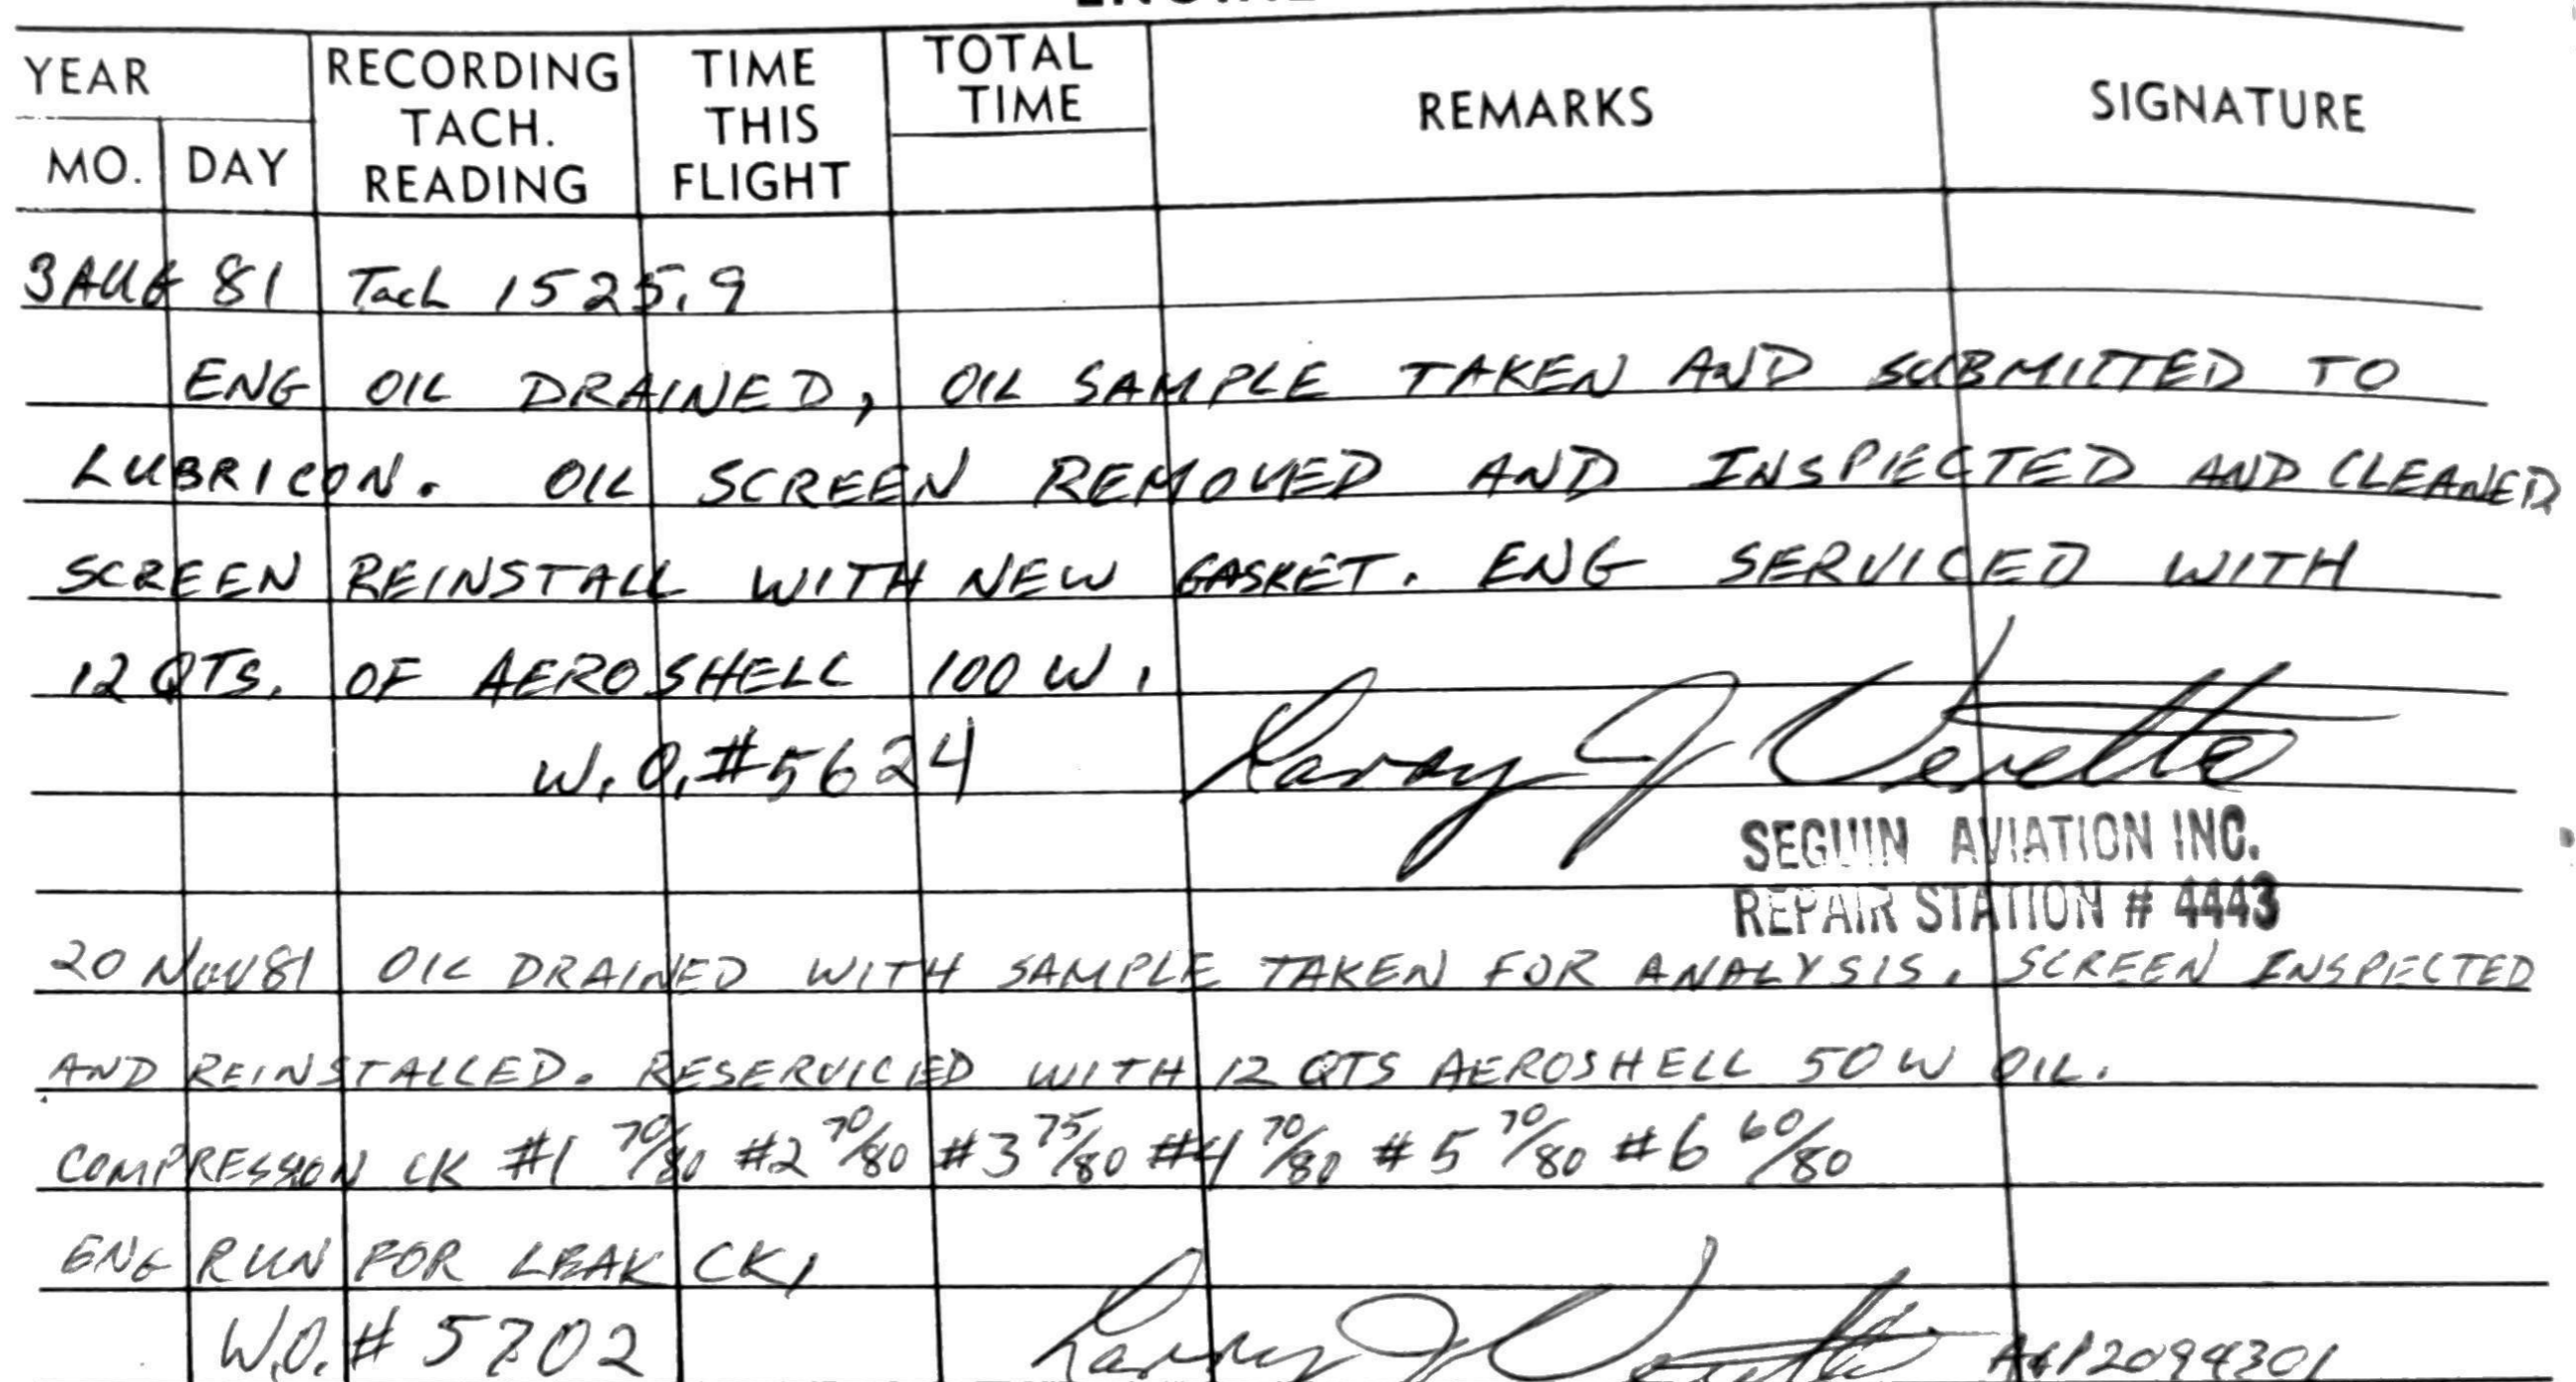 YEAR
MO. DAY
RECORDING TACH. READING
TIME THIS FLIGHT
TOTAL TIME
REMARKS
SIGNATURE
3 AUG 81 Tach 1525.9
ENG OIL DRAINED, OIL SAMPLE TAKEN AND SUBMITTED TO
LUBRICON. OIL SCREEN REMOVED AND INSPECTED AND CLEANED
SCREEN REINSTALL WITH NEW GASKET. ENG SERVICED WITH
12 QTS. OF AEROSHELL 100 W.
W.O.#5624 Larry J
SEGUIN AVIATION INC.
REPAIR STATION # 4443
20 NOV 81 OIL DRAINED WITH SAMPLE TAKEN FOR ANALYSIS. SCREEN INSPECTED
AND REINSTALLED. RESERVICED WITH 12 QTS AEROSHELL 50W OIL.
COMPRESSION CK #1 70/80 #2 70/80 #3 75/80 #4 70/80 #5 70/80 #6 60/80
ENG RUN FOR LEAK CK,
W.O.# 5702 Larry J A&P2094301